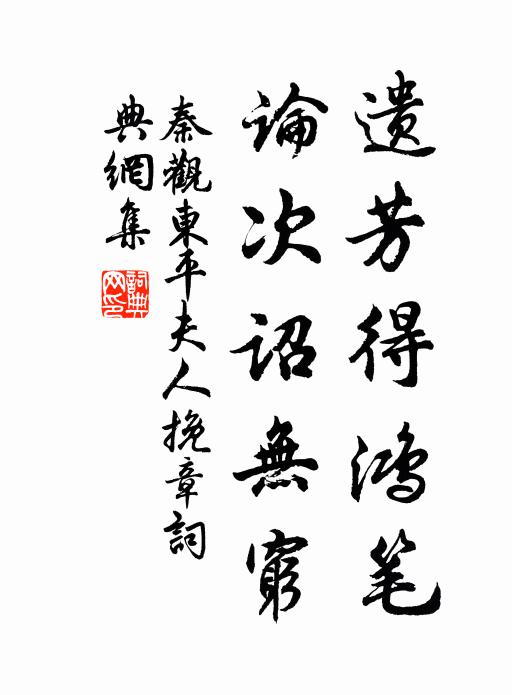 遺芳得鴻笔
論次詔無窮
秦觀東平夫人挽章詞
典網集
詞典网印